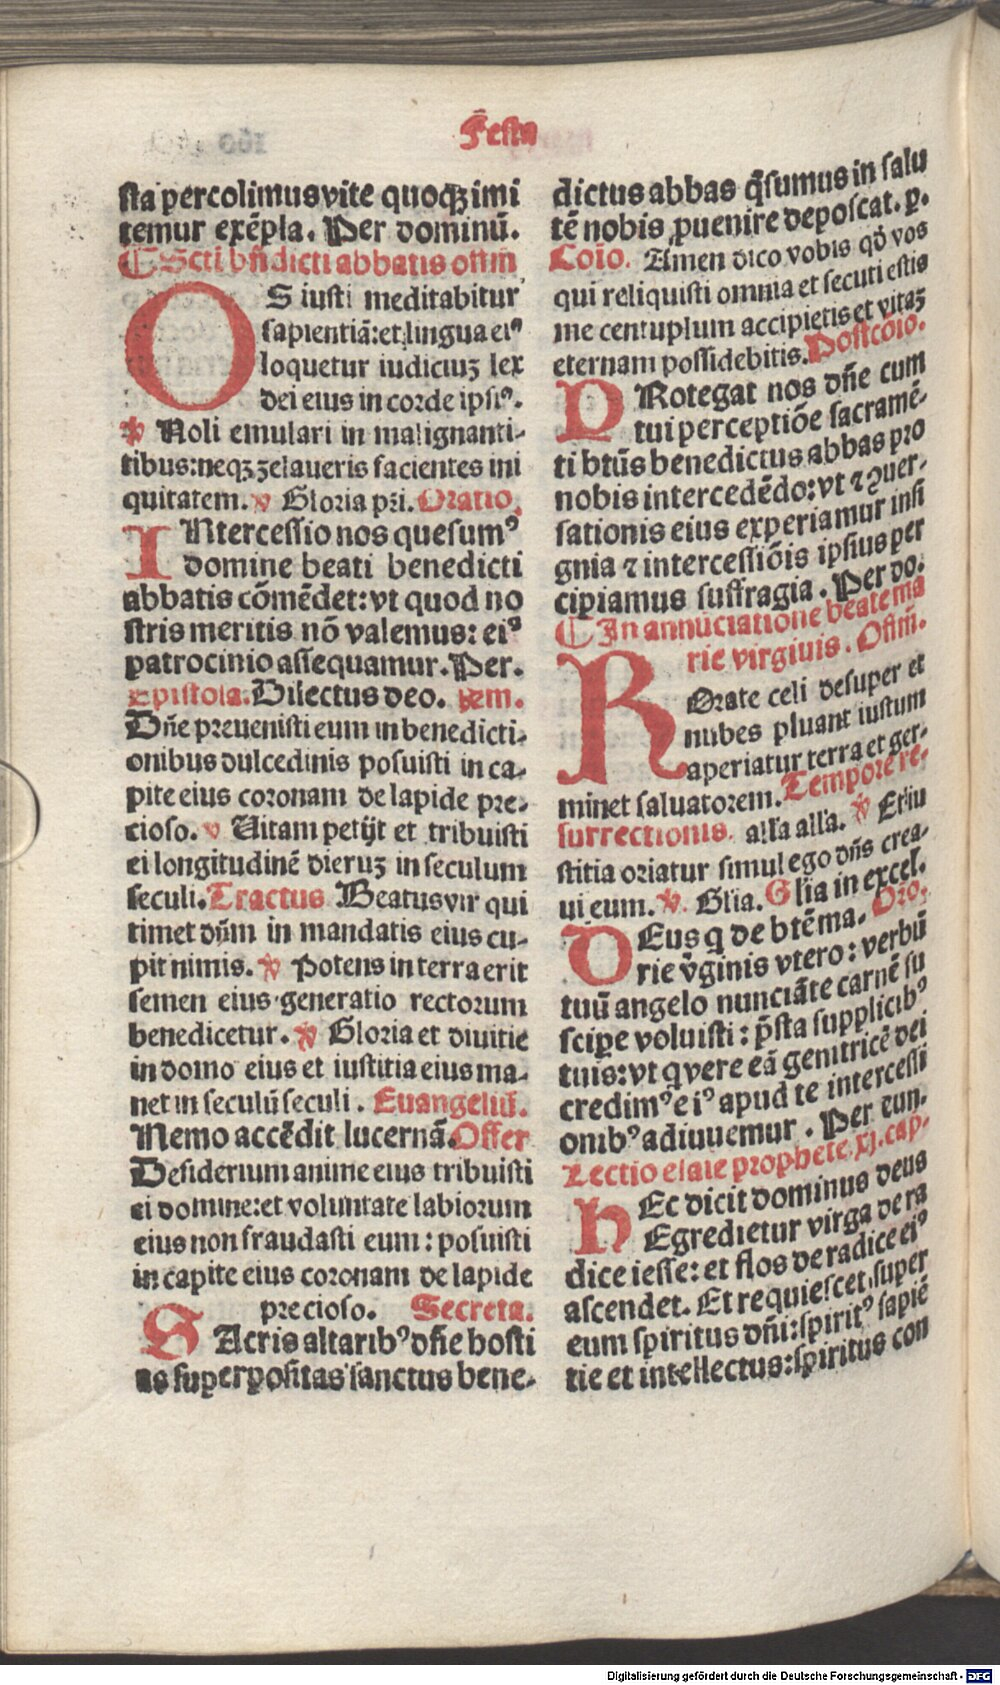 Festa
sta percolimus vite quoqꝫ imi
temur exēpla. Per dominū.
Scti bn̄dicti abbatis offm̄
OS iusti meditabitur
sapientiā:et lingua eiꝰ
loquetur iudiciuꝫ lex
dei eius in corde ipsiꝰ.
ps Noli emulari in malignanti-
tibus:neqꝫ zelaueris facientes ini
quitatem. v Gloria pr̄i. Oratio.
INtercessio nos quesumꝰ
domine beati benedicti
abbatis cōmēdet:vt quod no
stris meritis nō valemus: eiꝰ
patrocinio assequamur. Per.
Epistola. Dilectus deo.
Dn̄e preuenisti eum in benedicti-
onibus dulcedinis posuisti in ca-
pite eius coronam de lapide pre-
cioso. v Uitam petijt et tribuisti
ei longitudinē dieruꝫ in seculum
seculi. Tractus Beatus vir qui
timet dūm in mandatis eius cu-
pit nimis. v Potens in terra erit
semen eius generatio rectorum
benedicetur. v Gloria et diuitie
in domo eius et iustitia eius ma-
net in seculū seculi. Euangeliū.
Nemo accēdit lucernā. Offer
Desiderium anime eius tribuisti
ei domine:et voluntate labiorum
eius non fraudasti eum: posuisti
in capite eius coronam de lapide
precioso. Secreta.
SAcris altaribꝰ dn̄e hosti
as superpositas sanctus bene-
dictus abbas q̄sumus in salu
tē nobis ꝓuenire deposcat. p.
Coīo. Amen dico vobis qd̄ vos
qui reliquisti omnia et secuti estis
me centuplum accipietis et vitaꝫ
eternam possidebitis. Postcōio.
PRotegat nos dn̄e cum
tui perceptiōe sacramē-
ti btūs benedictus abbas pro
nobis intercedēdo:vt ⁊ ꝯuer-
sationis eius experiamur insi
gnia ⁊ intercessiōis ipsius per
cipiamus suffragia. Per do.
In annūciatione beate ma
rie virginis. Offm̄.
ROrate celi desuper et
nubes pluant iustum
aperiatur terra et ger-
minet saluatorem. Tempore re-
surrectionis. all'a all'a. ps Et iu
stitia oriatur simul ego dn̄s crea-
ui eum. v. Gl'ia. Gl'ia in excel.
Oro.
DEus q de btē ma-
rie v̄ginis vtero: verbū
tuū angelo nunciāte carnē su
scipe voluisti: p̄sta supplicibꝰ
tuis:vt q vere eā genitricē dei
credimꝰ eiꝰ apud te intercessi
onibꝰ adiuuemur. Per eun.
Lectio esaie prophete. xj. cap.
HEc dicit dominus deus
Egredietur virga de ra
dice iesse: et flos de radice eiꝰ
ascendet. Et requiescet super
eum spiritus dn̄i:spiritꝰ sapiē
tie et intellectus:spiritus con
Digitalisierung gefördert durch die Deutsche Forschungsgemeinschaft - DFG